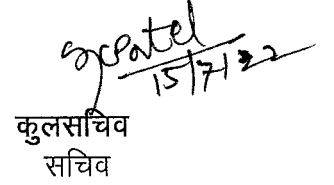 15/7/22
कुलसचिव
सचिव